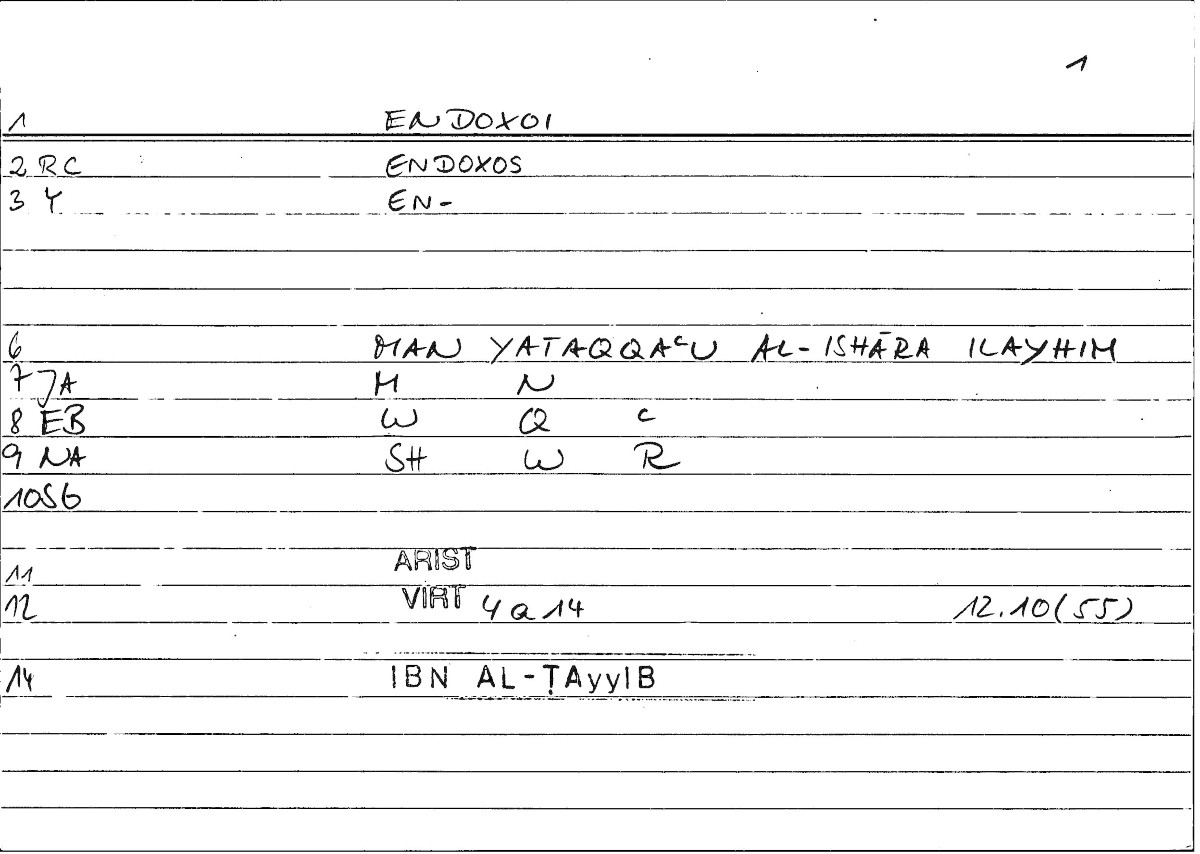 1
1 ENDOXOI
2 RC ENDOXOS
3 Y EN-
6 MAN YATAQQAᶜU AL-ISHĀRA ILAYHIM
7 JA M N
8 EB W Q ᶜ
9 NA SH W R
10SG
11 ARIST
12 VIRT 4a14 12.10(55)
14 IBN AL-ṬAyyIB